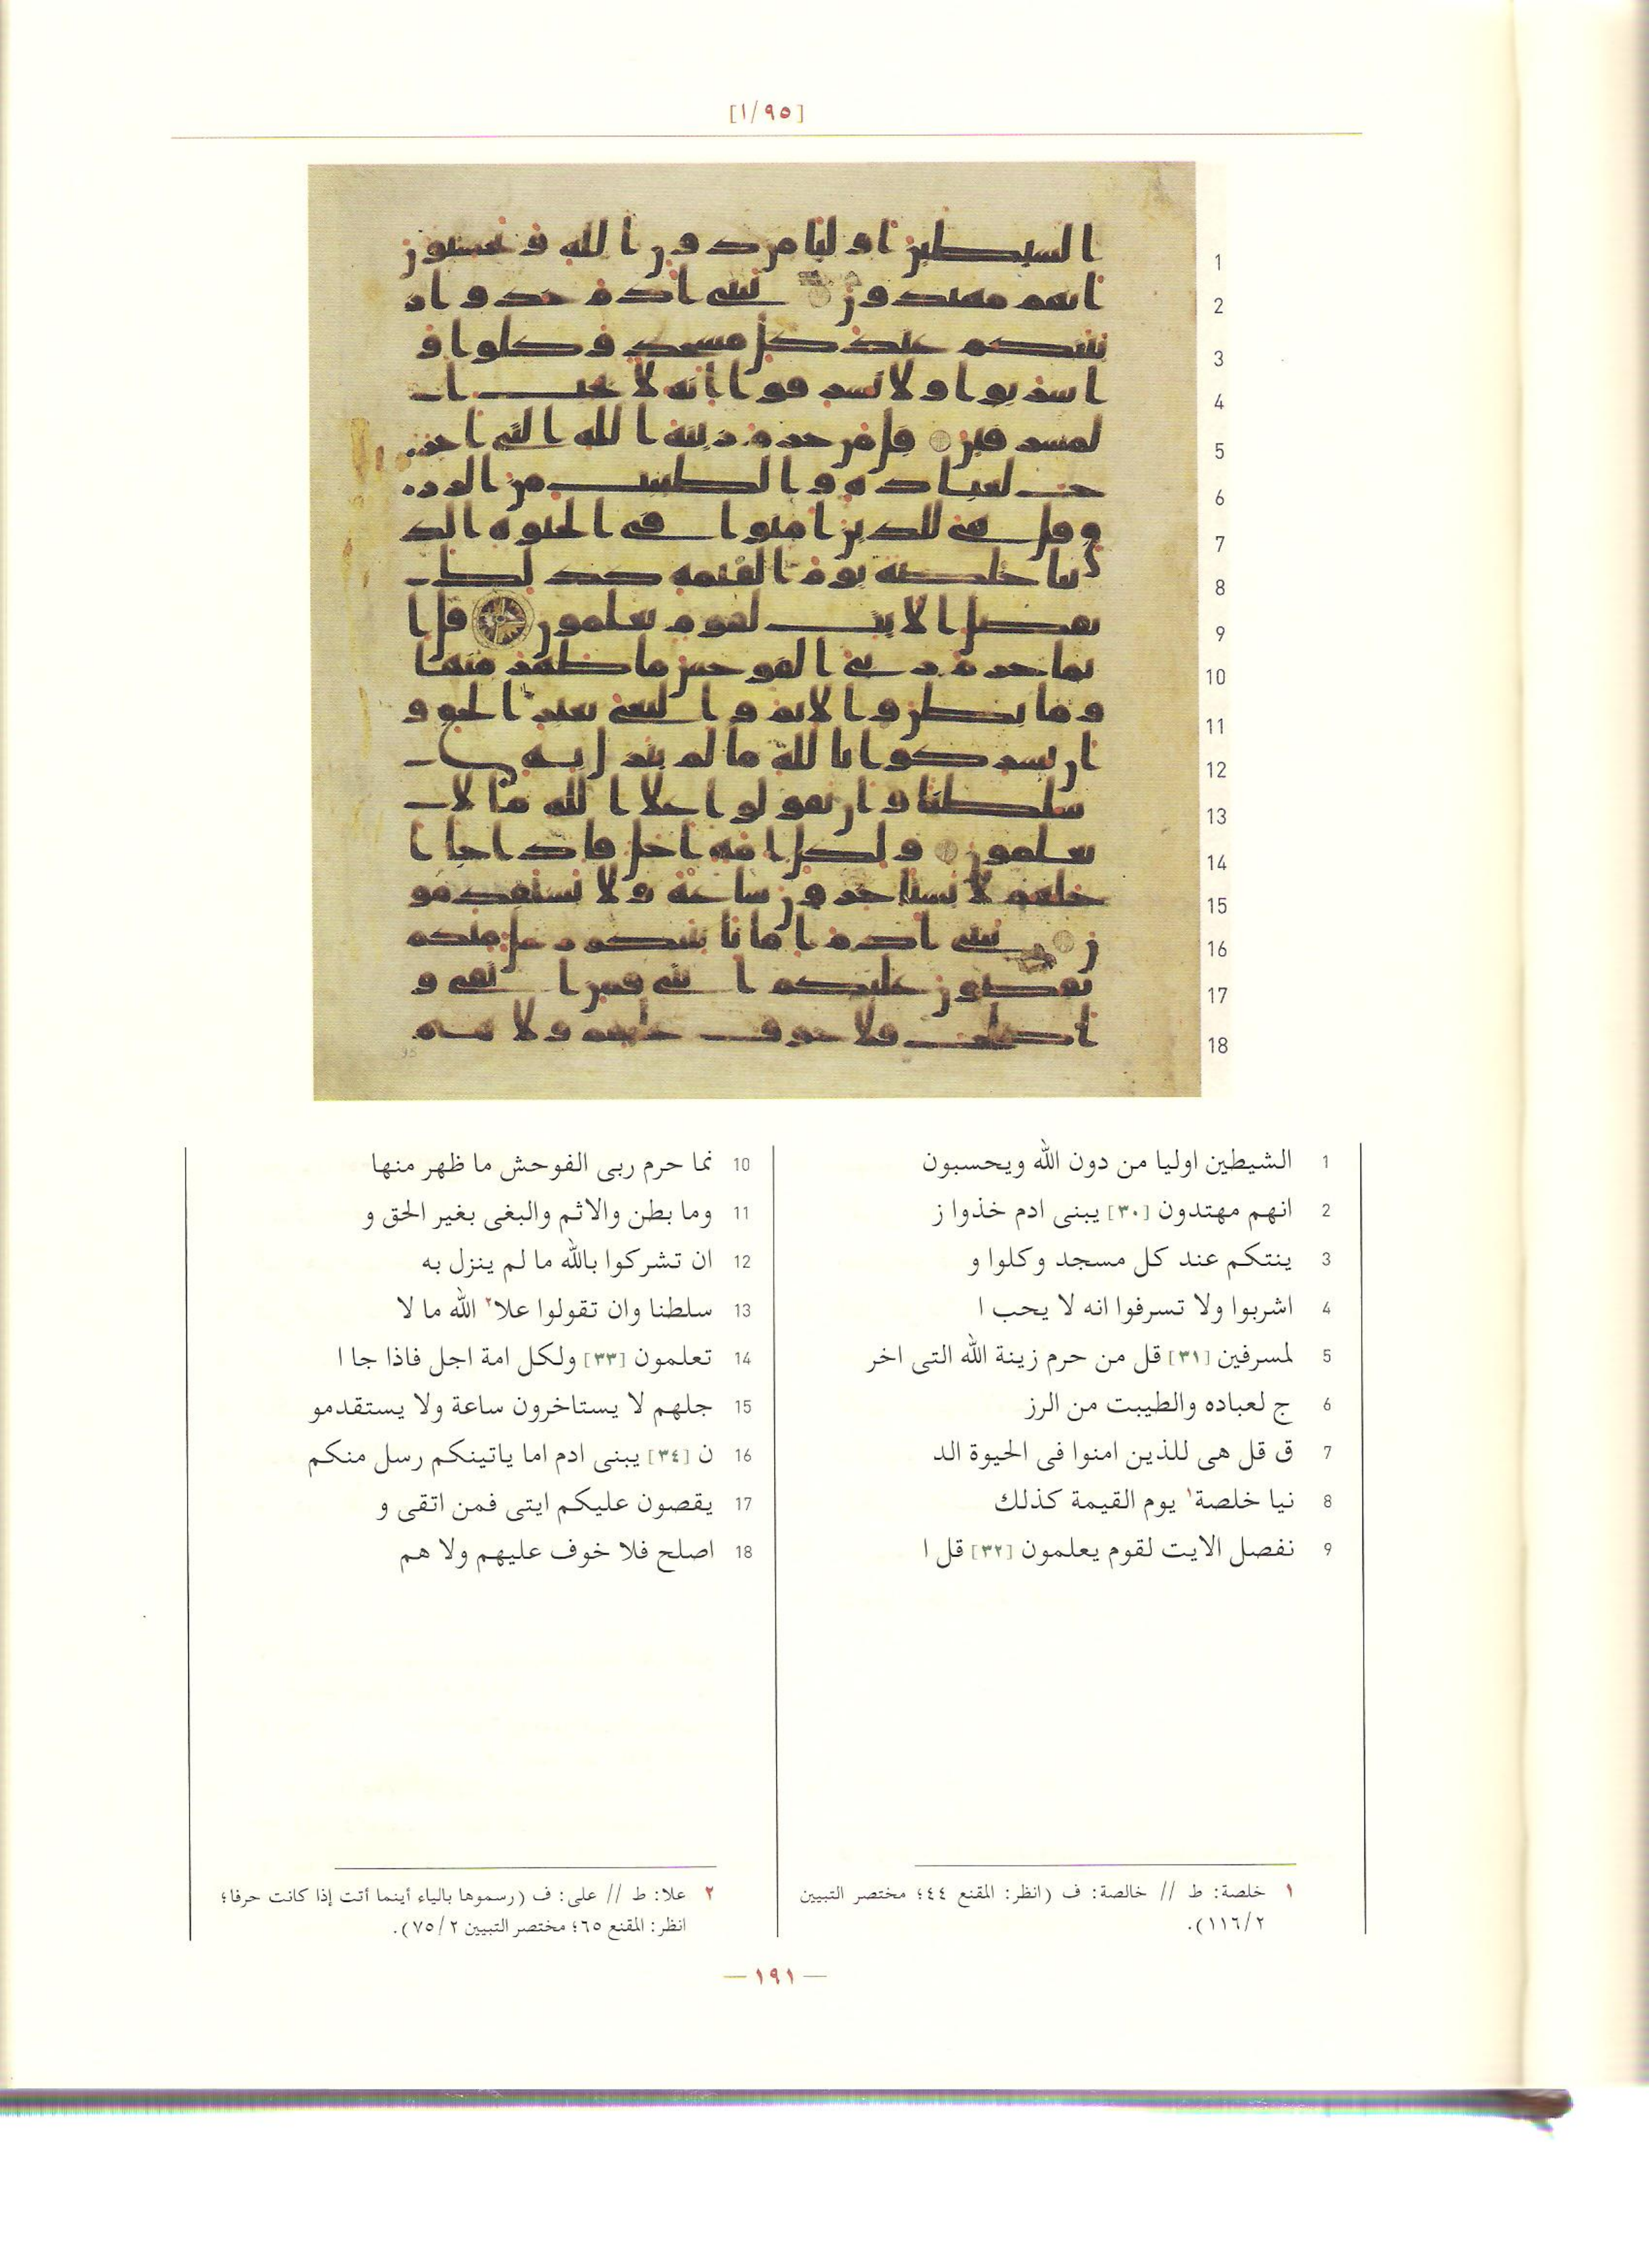 [١/٩٥]
1
2
3
4
5
6
7
8
9
10
11
12
13
14
15
16
17
18
1 الشيطين اوليا من دون الله ويحسبون
2 انهم مهتدون [٣٠] يبنى ادم خذوا ز
3 ينتكم عند كل مسجد وكلوا و
4 اشربوا ولا تسرفوا انه لا يحب ا
5 لمسرفين [٣١] قل من حرم زينة الله التى اخر
6 ج لعباده والطيبت من الرز
7 ق قل هى للذين امنوا فى الحيوة الد
8 نيا خلصة١ يوم القيمة كذلك
9 نفصل الايت لقوم يعلمون [٣٢] قل ا
10 نما حرم ربى الفوحش ما ظهر منها
11 وما بطن والاثم والبغى بغير الحق و
12 ان تشركوا بالله ما لم ينزل به
13 سلطنا وان تقولوا علا٢ الله ما لا
14 تعلمون [٣٣] ولكل امة اجل فاذا جا ا
15 جلهم لا يستاخرون ساعة ولا يستقدمو
16 ن [٣٤] يبنى ادم اما ياتينكم رسل منكم
17 يقصون عليكم ايتى فمن اتقى و
18 اصلح فلا خوف عليهم ولا هم
١ خلصة: ط // خالصة: ف (انظر: المقنع ٤٤؛ مختصر التبيين
١١٦/٢).
٢ علا: ط // على: ف (رسموها بالياء أينما أتت إذا كانت حرفا؛
انظر: المقنع ٦٥؛ مختصر التبيين ٧٥/٢).
— ١٩١ —